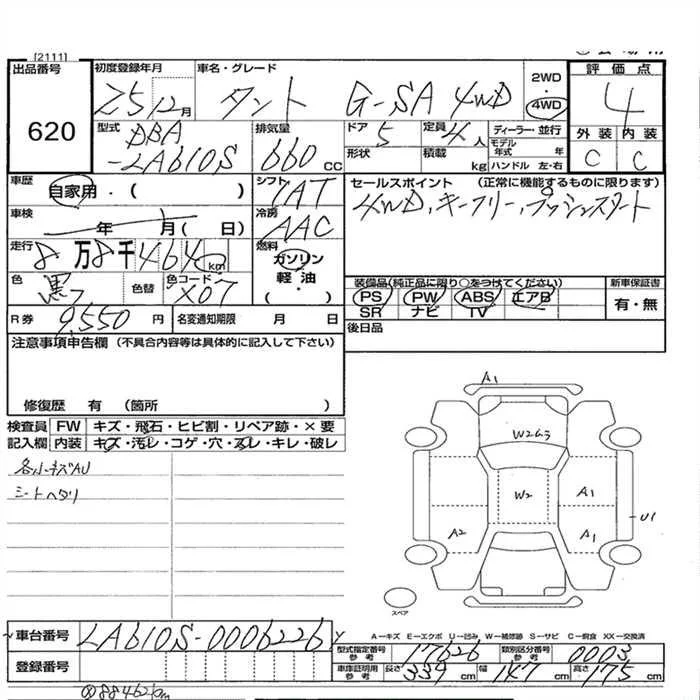 [2111]
出品番号 620
初度登録年月 25 12月
車名・グレード タント G-SA 4WD
2WD・4WD
評価点 4
外装 内装
C C
型式 DBA-LA610S
排気量 660 CC
ドア 5
形状
定員 4人
積載 kg
ディーラー・並行
モデル年式 年
ハンドル 左・右
車歴 自家用・( )
シフト IAT
車検 年 月( 日)
冷房 AAC
走行 8万8千464 km
燃料 ガソリン 軽油・( )
色 黒
色替
色コード X07
R券 9,550円
名変通知期限 月 日
セールスポイント (正常に機能するものに限ります)
4WD、キーフリー、プッシュスタート
装備品(純正品に限り○をつけてください)
PS PW ABS エアB
SR ナビ TV
新車保証書
有・無
後日品
注意事項申告欄 (不具合内容等は具体的に記入して下さい)
修復歴 有 (箇所 )
検査員 FW キズ・飛石・ヒビ割・リペア跡・×要
記入欄 内装 キズ・汚レ・コゲ・穴・スレ・キレ・破レ
各小キズAU
シートヘタリ
A1
W2ムラ
W2
A1
U1
A2
A1
スペア
A-キズ E-エクボ U-凹み W-補修跡 S-サビ C-腐食 XX-交換済
車台番号 LA610S-0006226
登録番号
型式指定番号 参考 17626
類別区分番号 参考 0003
車庫証明用 参考 長さ 339 cm 幅 147 cm 高さ 175 cm
88462km